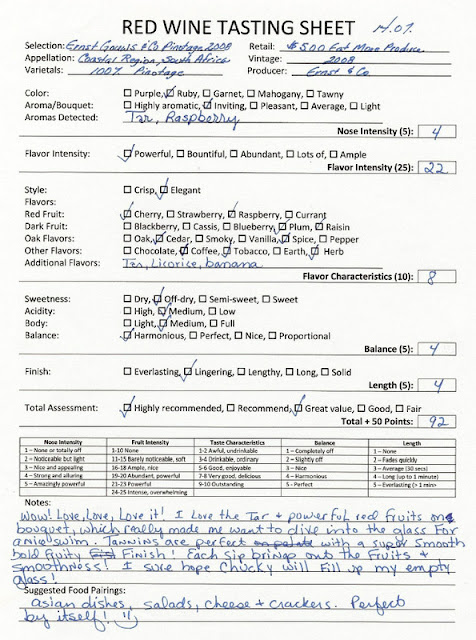 RED WINE TASTING SHEET
Selection: Ernst Gouws & Co Pinotage 2008 Retail: $5.00 Eat More Produce
Appellation: Coastal Region, South Africa Vintage: 2008
Varietals: 100% Pinotage Producer: Ernst & Co
Color: Purple, Ruby, Garnet, Mahogany, Tawny
Aroma/Bouquet: Highly aromatic, Inviting, Pleasant, Average, Light
Aromas Detected: Tar, Raspberry
Nose Intensity (5): 4
Flavor Intensity: Powerful, Bountiful, Abundant, Lots of, Ample
Flavor Intensity (25): 22
Style: Crisp, Elegant
Flavors:
Red Fruit: Cherry, Strawberry, Raspberry, Currant
Dark Fruit: Blackberry, Cassis, Blueberry, Plum, Raisin
Oak Flavors: Oak, Cedar, Smoky, Vanilla, Spice, Pepper
Other Flavors: Chocolate, Coffee, Tobacco, Earth, Herb
Additional Flavors: Tar, Licorice, banana
Flavor Characteristics (10): 8
Sweetness: Dry, Off-dry, Semi-sweet, Sweet
Acidity: High, Medium, Low
Body: Light, Medium, Full
Balance: Harmonious, Perfect, Nice, Proportional
Balance (5): 4
Finish: Everlasting, Lingering, Lengthy, Long, Solid
Length (5): 4
Total Assessment: Highly recommended, Recommend, Great value, Good, Fair
Total + 50 Points: 92
Nose Intensity Fruit Intensity Taste Characteristics Balance Length
1 – None or totally off 1-10 None 1-2 Awful, undrinkable 1 – Completely off 1 – None
2 – Noticeable but light 11-15 Barely noticeable, soft 3-4 Drinkable, ordinary 2 – Slightly off 2 – Fades quickly
3 – Nice and appealing 16-18 Ample, nice 5-6 Good, enjoyable 3 – Nice 3 – Average (30 secs)
4 – Strong and alluring 19-20 Abundant, powerful 7-8 Very good, delicious 4 – Harmonious 4 – Long (up to 1 minute)
5 – Amazingly powerful 21-23 Powerful 9-10 Outstanding 5 - Perfect 5 – Everlasting (> 1 min>
24-25 Intense, overwhelming
Notes:
Wow! Love, Love, Love it! I love the Tar & powerful red fruits on
bouquet, which really made me want to dive into the glass for
a nice swim. Tannins are perfect with a super smooth
bold fruity Finish! Each sip brings out the fruits &
smoothness! I sure hope Chucky will fill up my empty
glass!
Suggested Food Pairings:
asian dishes, salads, cheese & crackers. Perfect
by itself!